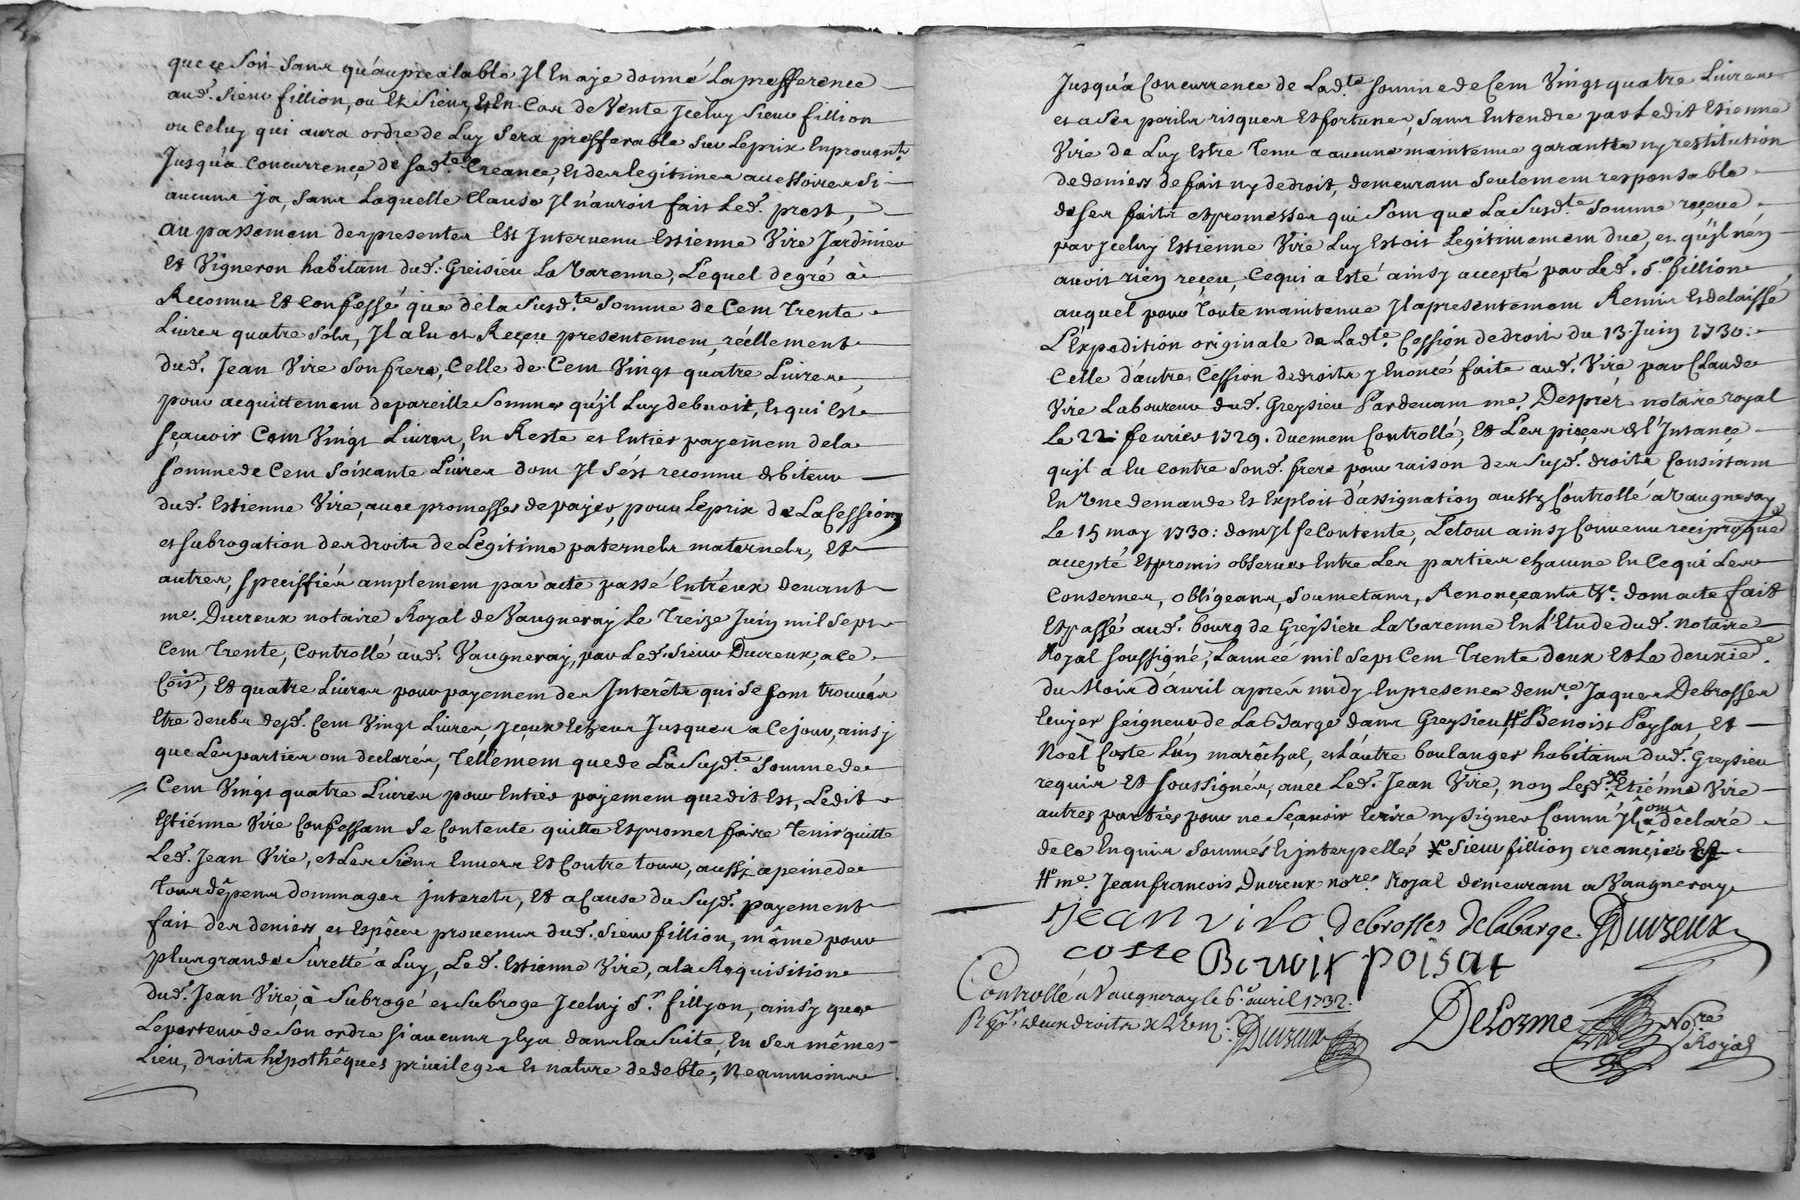 que ce soit sans qu'au prealable Il en aye donné La prefference
aud. Sieur fillion, ou Es Siens, et En Cas de Vente Iceluy Sieur fillion
ou celuy qui aura ordre de Luy Sera prefferable Sur Le prix En provent.
Jusqu'a Concurrence de Sad.te Creance, et des legitimes accessoires Si
aucuns ja, sans Laquelle Clause Il n'auroit fait Led. prest,
au passement des presentes Est Intervenu Estienne Vire Jardinier
Et Vigneron habitant dud. Greisieu La Varenne, Lequel de gré à
Reconnu Et Confessé que de la Susd.te Somme de Cent Trente
Livres quatre Sols, Il a Eu et Reçeu presentement, réellement
dud. Jean Vire Son frere, Celle de Cent Vingt quatre Livres,
pour acquittement de pareille Somme qu'jl Luy debvoit, Et qui Est
sçavoir Cent Vingt Livres, En Reste et Entier payement de la
Somme de Cent Soixante Livres dont Il s'est reconnu debiteur
dud. Estienne Vire, avec promesses de payer, pour Le prix de La Cession
et subrogation des droits de Legitime paternels maternels, Et
autres, speciffiés amplement par acte passé Entr'eux devant
me. Ducreux notaire Royal de Vaugneray Le Treize Juin mil Sept
Cent Trente, Controllé aud. Vaugneray, par Led. Sieur Ducreux, a ce
Cois, Et quatre Livres pour payement des Interêts qui Se sont trouvés
Etre deubs desd. Cent Vingt Livres Iceux Echeus Jusques a Ce jour, ainsy
que Les parties ont declarés, Tellement que de La Susd.te Somme de
Cent Vingt quatre Livres pour Entier payement que dit Est, Ledit
Estiénne Vire Confessant Se Contente quitte Et promet faire Tenir quitte
Led. Jean Vire, et Les Siens Envers Et Contre tous, aussy a peine de
Tous dêpens dommages interets, Et a Cause du Susd. payement
fait des deniers et Espêces provenus dud. Sieur fillion, même pour
plus grande Sûretté à Luy, Led. Estienne Vire, a la Requisition
dud. Jean Vire, à Subrogé et Subroge Iceluy S.r fillyon, ainsy que
Le porteur de Son ordre Si aucuns y'a dans la Suitte, En Ses mêmes
Lieu, droits hipothêques privileges Et nature de debte, Neammoins
Jusqu'a Concurrence de Lad.te Somme de Cent Vingt quatre Livres
et a Ses perils risques Et fortunes, sans Entendre par Ledit Estienne
Vire de Luy Estre Tenu a aucune maintenue garantie ny restitution
de deniers de fait ny de droit, demeurant Seulement responsable
de Ses faits et promesses qui Sont que La Susd.te Somme reçeue
par Iceluy Estienne Vire Luy Estoit Legitimement due, et qu'jl n'en
avoit rien reçeu, Ce qui a Esté ainsy accepté par Led. S.r fillion
auquel pour Toute maintenue Il a presentement Remis Et delaissé
L'Expedition originale de Lad.te Cession de droit du 13 Juin 1730:
Celle d'autre Cession de droits y Enoncé faite aud. Vire par Claude
Vire Laboureur dud. Greysieu Pardevant me. Desprér notaire royal
Le 22 fevrier 1729. duement Controllé, Et Les pieçes de l'Instançe
qujl a Eu contre Sond. frere pour raison des Susd. droits Consistant
En Une demande Et Exploit d'assignation aussy Controllé a Vaugneray
Le 15 may 1730: dont Il se Contente, Le tout ainsy Convenu reciproque
accepté Et promis observer Entre Les parties chacune En Ce qui Les
Consernes, obligeans, Soumetans, Renonçeants &c. dont acte fait
Et passé aud. bourg de Greysieu La Varenne En L'Etude dud. Notaire
Royal soussigné, L'année mil Sept Cent Trente deux Et Le deuxie.
du Mois d'avril aprés midy En presence de mre. Jaques Debrosses
Ecuyer Seigneur de La Barge dans Greysieu # Benoist Poysat, Et
Noël Coste L'un marêchal, et L'autre boulanger habitans dud. Greysieu
requis Et soussignés, avec Led. Jean Vire, non Led. X Etiénne Vire
autres parties pour ne Sçavoir Ecrire ny Signer Comm' Ils ont declaré
de ce Enquis Sommés Et interpellés X Sieur fillion creançier Et
# me. Jean francois Ducreux nore. Royal demeurant a Vaugneray
Jean viro Debrosses delabarge. Ducreux
coste Benoit poisat
Controllé a Vaugneray le 6.e avril 1732.
Ducreux
Delorme Nore
Royal